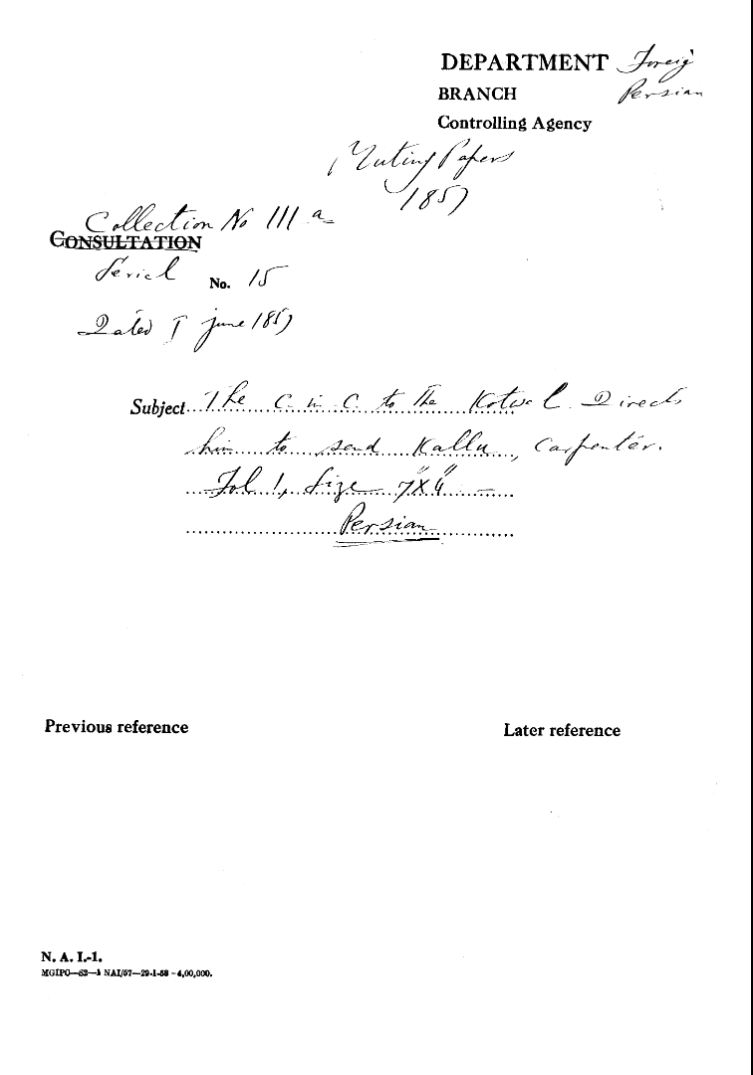 DEPARTMENT Foreig
BRANCH Persian
Controlling Agency
Mutiny Papers
1857
Collection No 111 a
CONSULTATION
Serial No. 15
Dated June 1857
Subject The C in C to the Kotwal Directs
him to send Kallu, Carpenter.
Fol 1, Size 7"X4"
Persian
Previous reference
Later reference
N. A. I.-1.
MGIPC—S2—1 NAI/57—29-1-58—4,00,000.